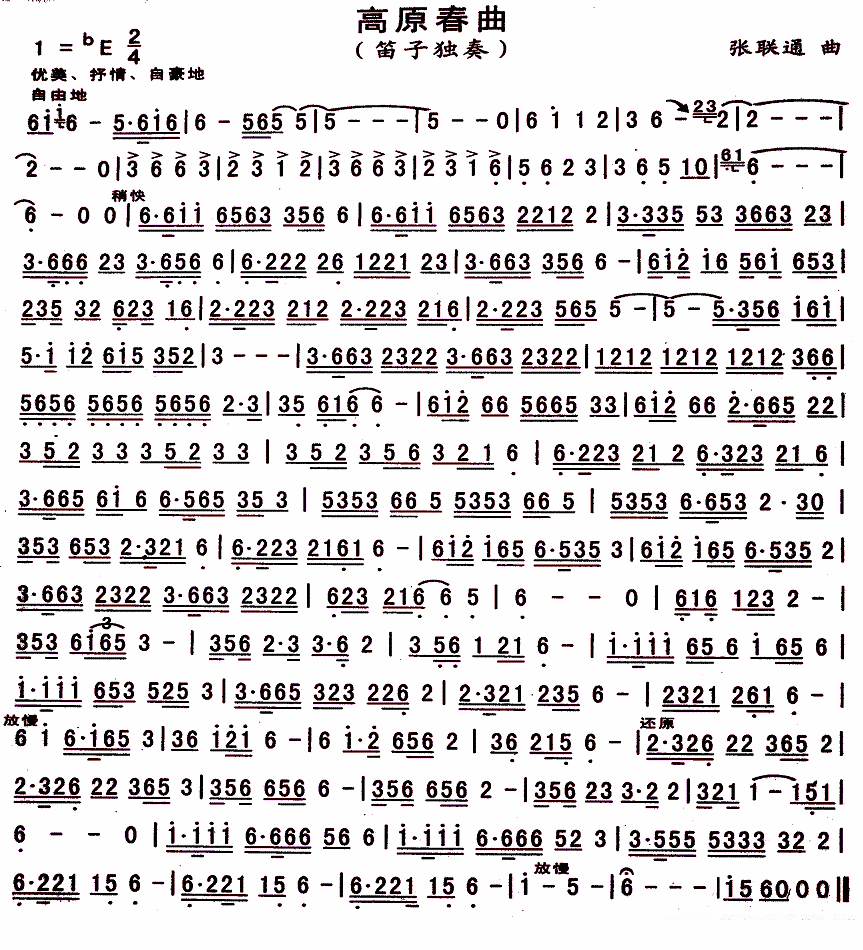 高原春曲
1 = ♭E 2/4
(笛子独奏)
张联通 曲
优美、抒情、自豪地
自由地
6i 1七6 – 5·6i6|6 – 565 5|5 – – –|5 – – 0|6 i 1 2|3 6 – 23七2|2 – – –|
2 – – 0|3 6 6 3|2 3 1 2|3 6 6 3|2 3 1 6|5 6 2 3|3 6 5 10|61七6 – – –|
稍快
6 – 0 0|6·6ii 6563 356 6|6·6ii 6563 2212 2|3·335 53 3663 23|
3·666 23 3·656 6|6·222 26 1221 23|3·663 356 6 –|6i2 i6 56i 653|
235 32 623 16|2·223 212 2·223 216|2·223 565 5 –|5 – 5·356 i6i|
5·i i2 6i5 352|3 – – –|3·663 2322 3·663 2322|1212 1212 1212 366|
5656 5656 5656 2·3|35 616 6 –|6i2 66 5665 33|6i2 66 2·665 22|
3 52 3 3 3 52 3 3 | 3 52 352 3 6 321 6 | 6·223 21 2 6·323 21 6|
3·665 6i 6 6·565 35 3 | 5353 66 5 5353 66 5 | 5353 6·653 2·30|
353 653 2·321 6|6·223 2161 6 –|6i2 i65 6·535 3|6i2 i65 6·535 2|
3·663 2322 3·663 2322| 623 216 6 5| 6 – – 0 | 616 123 2 –|
3
353 6i65 3 –| 356 2·3 3·6 2 | 3 56 1 21 6 –| i·iii 65 6 i 65 6|
i·iii 653 525 3|3·665 323 226 2|2·321 235 6 –|2321 261 6 –|
放慢
还原
6 i 6·i65 3|36 i2i 6 –|6 i·2 656 2 | 36 215 6 –|2·326 22 365 2|
2·326 22 365 3|356 656 6 –|356 656 2 –|356 23 3·2 2|321 1 – 151|
6 – – 0 |i·iii 6·666 56 6|i·iii 6·666 52 3|3·555 5333 32 2|
放慢
6·221 15 6 –|6·221 15 6 –|6·221 15 6 –|i – 5 –|6 – – –|i56000‖